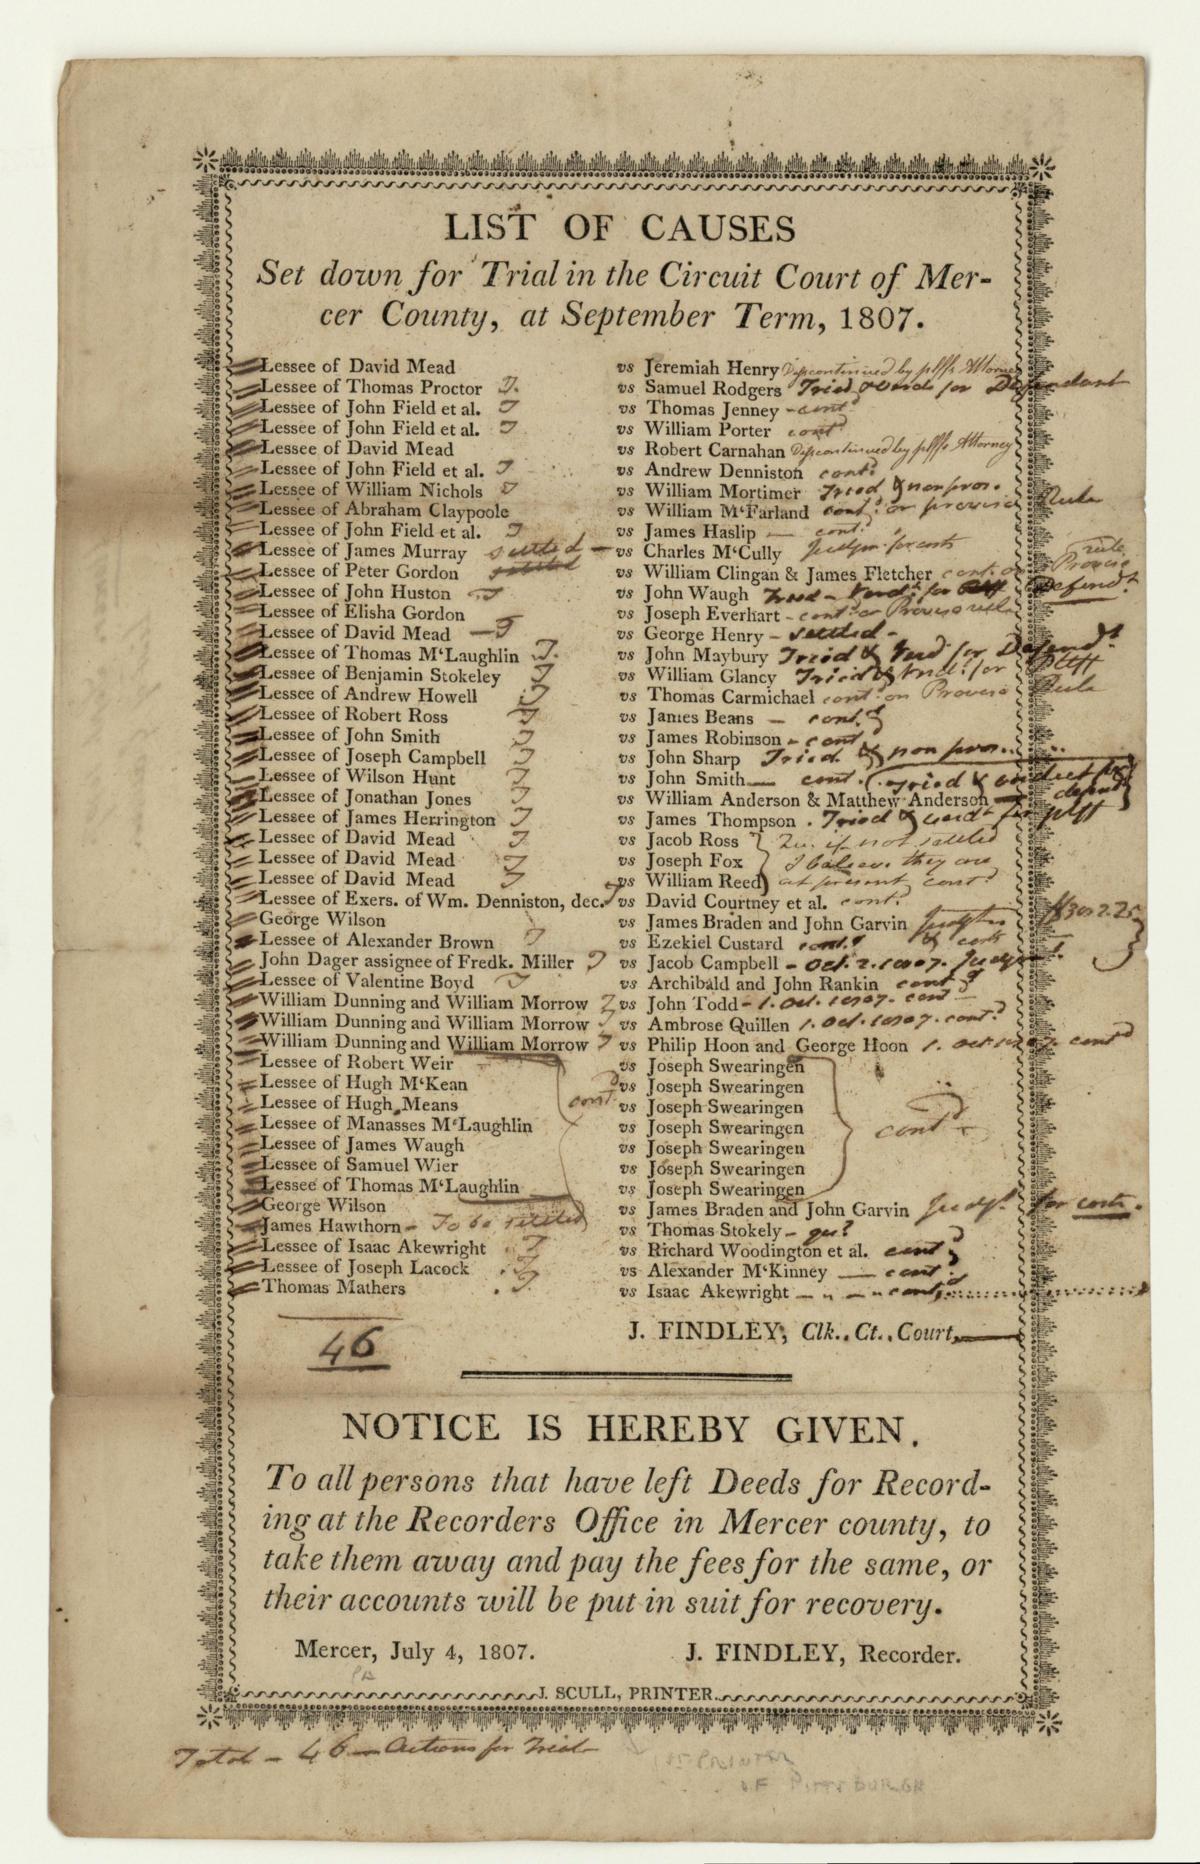 LIST OF CAUSES
Set down for Trial in the Circuit Court of Mer-
cer County, at September Term, 1807.
Lessee of David Mead vs Jeremiah Henry Discontinued by plffs Attorney
Lessee of Thomas Proctor T. vs Samuel Rodgers Tried & verdt for Defendant
Lessee of John Field et al. T vs Thomas Jenney - contd
Lessee of John Field et al. T vs William Porter contd
Lessee of David Mead vs Robert Carnahan Discontinued by plffs Attorney
Lessee of John Field et al. T vs Andrew Denniston contd
Lessee of William Nichols T vs William Mortimer Tried & non pros.
Lessee of Abraham Claypoole vs William M'Farland contd on proviso Rule
Lessee of John Field et al. T vs James Haslip — contd
Lessee of James Murray settled — vs Charles M'Cully Judgm. for costs
Lessee of Peter Gordon settled vs William Clingan & James Fletcher contd on Proviso rule
Lessee of John Huston T vs John Waugh Tried - Verdt for Plff Defendt
Lessee of Elisha Gordon vs Joseph Everhart - contd on Proviso rule
Lessee of David Mead — T vs George Henry - settled -
Lessee of Thomas M'Laughlin T. vs John Maybury Tried & Verd for Defendt
Lessee of Benjamin Stokeley T vs William Glancy Tried & Verdt for Plff
Lessee of Andrew Howell T vs Thomas Carmichael cont on Proviso Rule
Lessee of Robert Ross T vs James Beans — contd
Lessee of John Smith T vs James Robinson - contd
Lessee of Joseph Campbell T vs John Sharp Tried & non pros..
Lessee of Wilson Hunt T vs John Smith — cont. (Tried & verdict for
Lessee of Jonathan Jones T vs William Anderson & Matthew Anderson — defendt
Lessee of James Herrington T vs James Thompson . Tried & verdt for plff
Lessee of David Mead T. vs Jacob Ross } Qu. if not settled
Lessee of David Mead T vs Joseph Fox } I believe they are
Lessee of David Mead T vs William Reed } at present contd
Lessee of Exers. of Wm. Denniston, dec. T vs David Courtney et al. contd
George Wilson vs James Braden and John Garvin
Lessee of Alexander Brown T vs Ezekiel Custard contd & costs
John Dager assignee of Fredk. Miller T vs Jacob Campbell - Oct. 2. 1807. Judgmt
Lessee of Valentine Boyd T vs Archibald and John Rankin contd
William Dunning and William Morrow T vs John Todd - 1. Oct. 1807. contd
William Dunning and William Morrow T vs Ambrose Quillen 1. Oct. 1807. contd
William Dunning and William Morrow T vs Philip Hoon and George Hoon 1. Oct. 1807. contd
Lessee of Robert Weir vs Joseph Swearingen
Lessee of Hugh M'Kean contd vs Joseph Swearingen
Lessee of Hugh Means vs Joseph Swearingen
Lessee of Manasses M'Laughlin vs Joseph Swearingen contd
Lessee of James Waugh vs Joseph Swearingen
Lessee of Samuel Wier vs Joseph Swearingen
Lessee of Thomas M'Laughlin vs Joseph Swearingen
George Wilson vs James Braden and John Garvin Judgt. for costs.
James Hawthorn - To be settled vs Thomas Stokely - qu?
Lessee of Isaac Akewright T vs Richard Woodington et al. contd
Lessee of Joseph Lacock . T. vs Alexander M'Kinney — contd
Thomas Mathers . T. vs Isaac Akewright — " — " contd
46
J. FINDLEY, Clk. Ct. Court,
NOTICE IS HEREBY GIVEN.
To all persons that have left Deeds for Record-
ing at the Recorders Office in Mercer county, to
take them away and pay the fees for the same, or
their accounts will be put in suit for recovery.
Mercer, July 4, 1807. J. FINDLEY, Recorder.
PA
J. SCULL, PRINTER.
Total - 46 — Actions for Trial
1ST PRINTER
OF PITTSBURGH